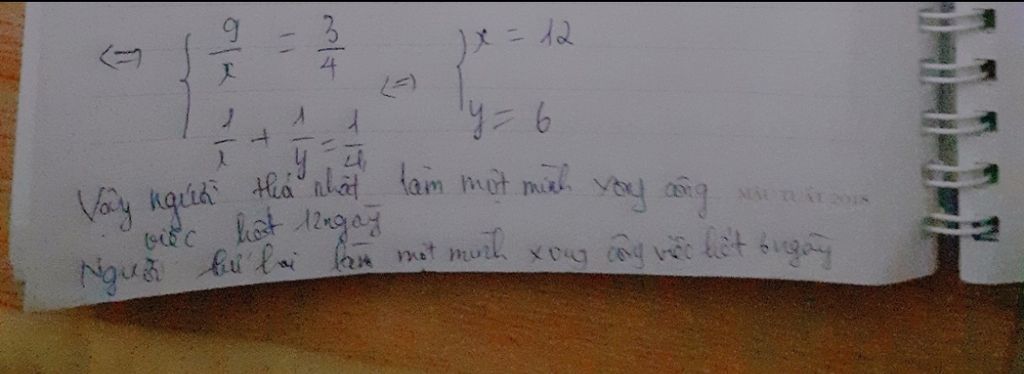 ⇔ { 9/x = 3/4 ⇔ { x = 12
1/x + 1/y = 1/4 y = 6
Vậy người thứ nhất làm một mình xong công
việc hết 12 ngày
Người thứ hai làm một mình xong công việc hết 6 ngày
MẬU TUẤT 2018